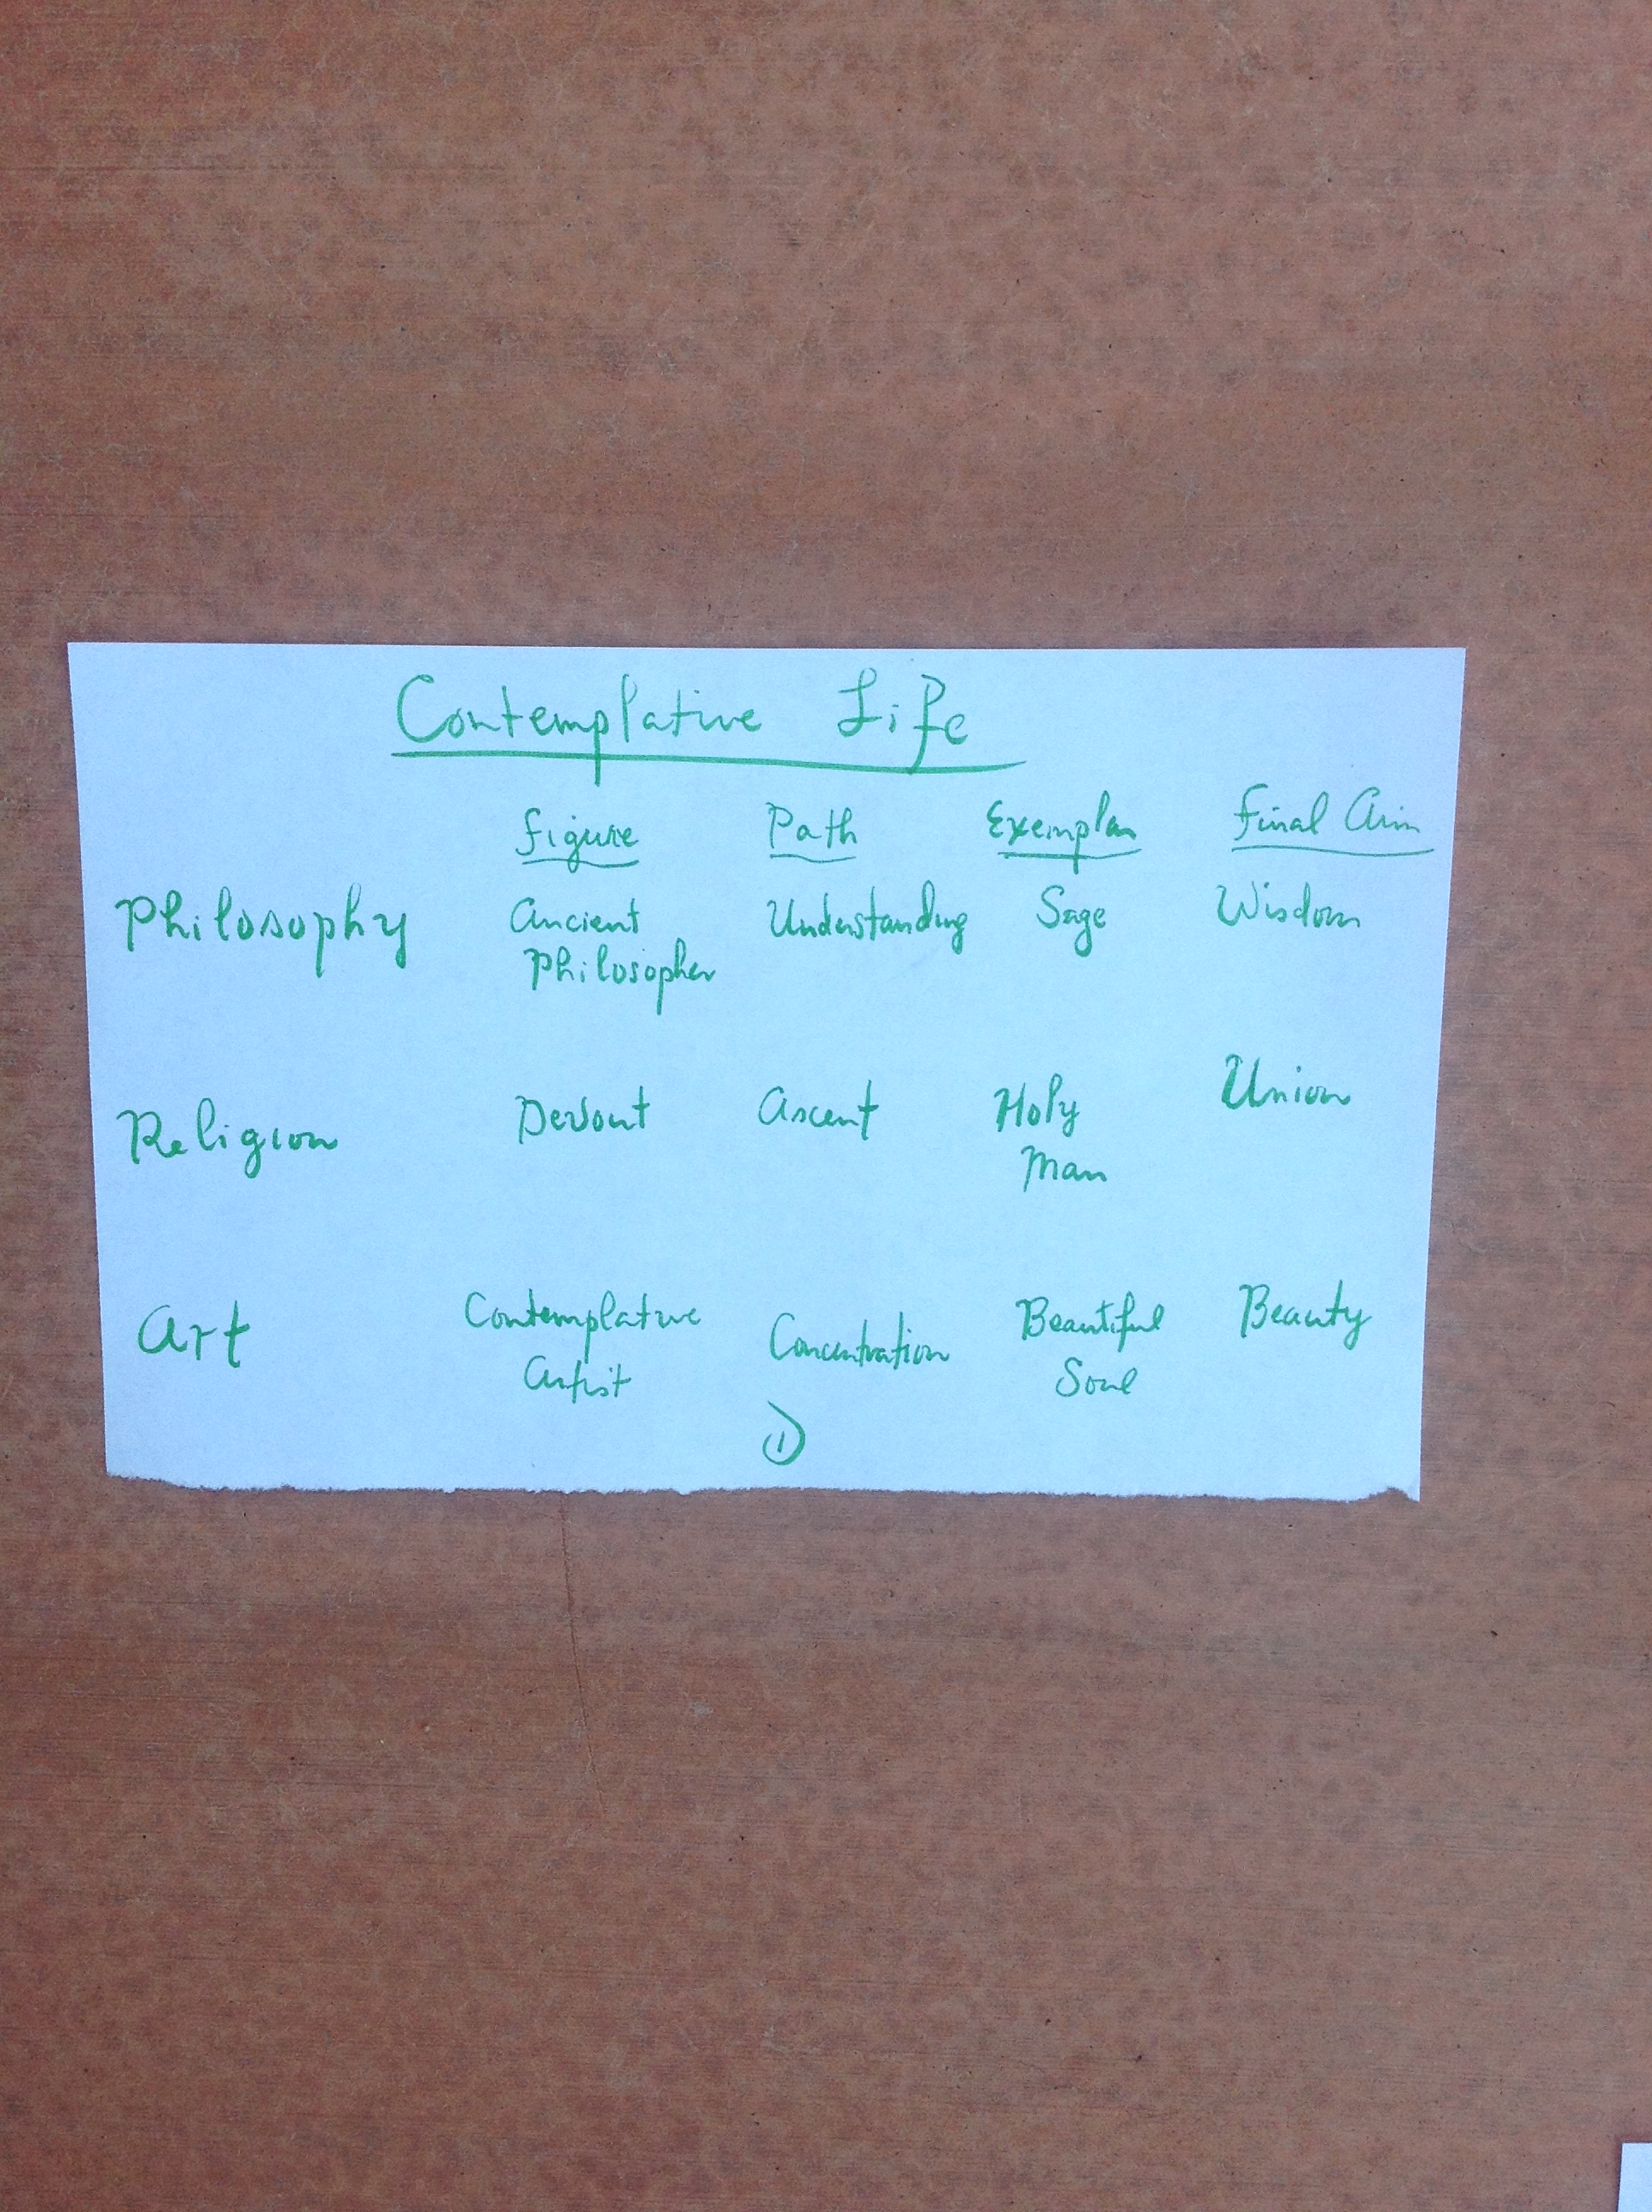 Contemplative Life
Figure Path Exemplar Final Aim
Philosophy Ancient Understanding Sage Wisdom
Philosopher
Religion Devout Ascent Holy Union
Man
Art Contemplative Concentration Beautiful Beauty
Artist Soul
1